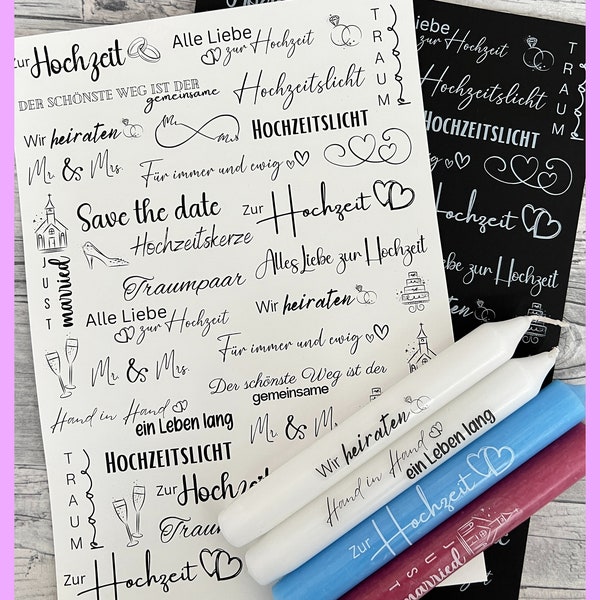 zur Hochzeit
Alle Liebe
zur Hochzeit
DER SCHÖNSTE WEG IST DER
gemeinsame
Hochzeitslicht
Wir heiraten
Mr. Mrs.
HOCHZEITSLICHT
TRAUM
paar
Mr. & Mrs.
Für immer und ewig
Save the date
Zur Hochzeit
Hochzeitskerze
JUST
married
Traumpaar
Alles Liebe zur Hochzeit
Alle Liebe
zur Hochzeit
Wir heiraten
Mr. & Mrs.
Für immer und ewig
Der schönste Weg ist der
gemeinsame
Hand in Hand
ein Leben lang
Mr. & Mrs.
HOCHZEITSLICHT
TRAUM
paar
Zur Hochzeit
Traumpaar
Zur Hochzeit
Liebe
zur Hochzeit
TRAUM
paar
Hochzeitslicht
HOCHZEITSLICHT
Hochzeit
be zur Hochzeit
heiraten
Wir heiraten
Hand in Hand
ein Leben lang
Zur Hochzeit
JUST
married